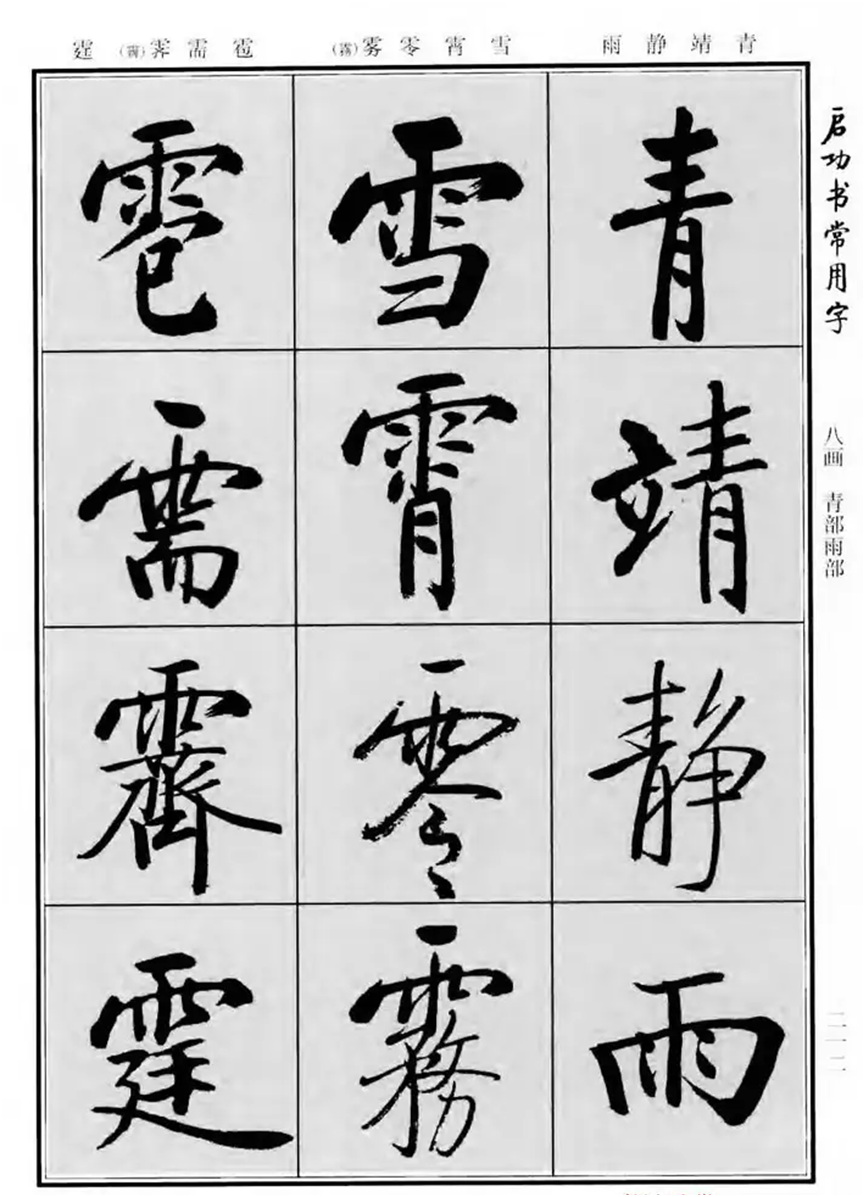 启功书常用字
八画 青部雨部
青靖静雨
雪霄零雾(霧)
雹需霁(霽)霆
青
靖
静
雨
雪
霄
零
霧
雹
需
霽
霆